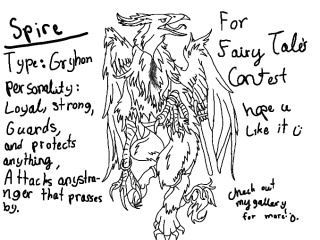 Spire
Type: Gryhon
Personality:
Loyal, Strong,
Guards,
and protects
anything,
Attacks anystra-
nger that prasses
by.
For
Fairy Tales
Contest
hope u
Like it C:
Check out
my gallery
for more :D.